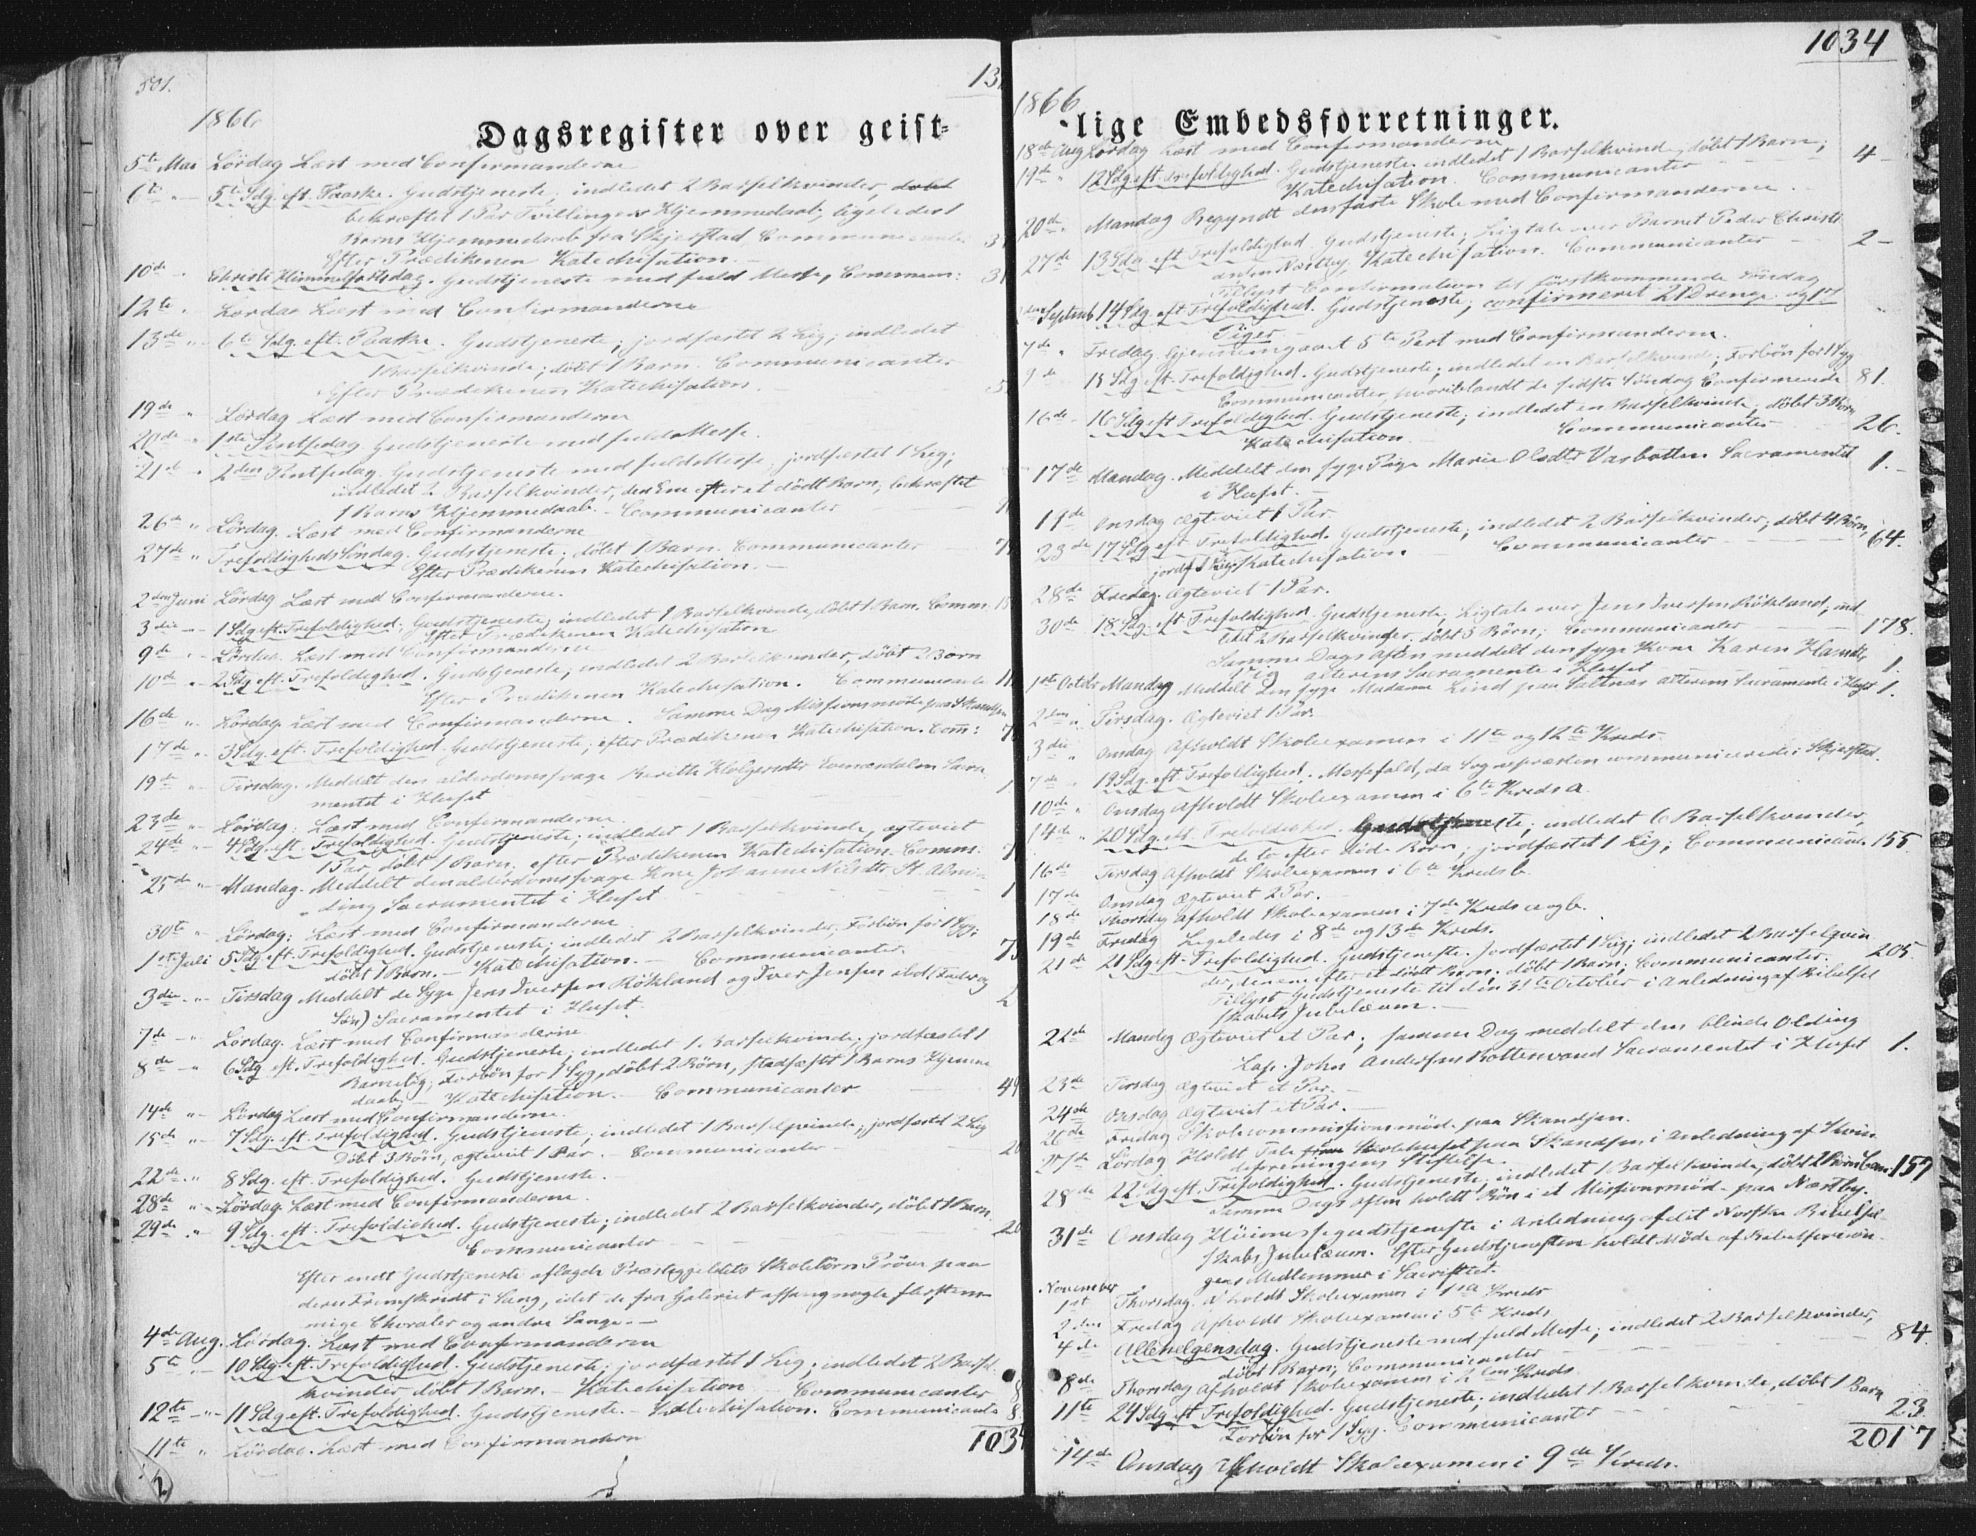 501.
1866
Dagsregister over geist-
5te Mai Lördag Læst med Confirmanderne
6te " 5te Sdg. eft. Paaske. Gudstjeneste, indledet 2 Barselkvinder, döbt
bekræftet 1 Par Tvillingers Hjemmedaab, ligeledes 1
Barns Hjemmedaab fra Skjerstad Communicanter
Efter Prædikenen Katechisation.
10de " Christi Himmelfartsdag. Gudstjeneste med fuld Messe, Commun:
12te " Lördag Læst med Confirmanderne
13de " 6te Sdg. eft. Paaske. Gudstjeneste; jordfæstet 2 Lig; indledet
1 Barselkvinde; döbt 1 Barn. Communicanter
Efter Prædikenen Katechisation.
19de " Lördag Læst med Confirmanderne
20de " 1ste Pintsedag Gudstjeneste med fuld Messe.
21de " 2den Pintsedag. Gudstjeneste med fuld Messe, jordfæstet 1 Lig;
indledet 2 Barselkvinder, den Ene efter et dödt Barn, bekræftet
1 Barns Hjemmedaab. - Communicanter
26de " Lördag. Læst med Confirmanderne
27de " Trefoldigheds Söndag. Gudstjeneste; döbt 1 Barn. Communicanter
Efter Prædikenen Katechisation. -
2den Juni Lördag Læst med Confirmanderne.
3die " 1 Sdg. eft. Trefoldighed. Gudstjeneste; indledet 1 Barselkvinde, döbt 1 Barn. Comm.
Efter Prædikenen Katechisation
9de " Lördag. Læst med Confirmanderne
10de " 2 Sdg. eft. Trefoldighed. Gudstjeneste; indledet 2 Barselkvinder, döbt 2 Börn
Efter Prædikenen Katechisation. Communicanter
16de " Lördag Læst med Confirmanderne. Samme Dag Missionsmöde paa Skandsen
17de " 3 Sdg. eft. Trefoldighed. Gudstjeneste; efter Prædikenen Katechisation. Com:
19de " Tirsdag. Meddelt den alderdomssvage Berith Holgersdtr Evenesdalen Sacra
mentet i Huset
23de " Lördag: Læst med Confirmanderne
24de " 4 Sdg. eft. Trefoldighed. Gudstjeneste; indledet 1 Barselkvinde, ægteviet
1 Par, döbt 1 Barn, efter Prædikenen Katechisation. Comm:
25de " Mandag. Meddelt den alderdomssvage Kone Johanne Nilsdtr St. Almin
ding Sacramentet i Huset
30te " Lördag: Læst med Confirmanderne
1ste Juli 5 Sdg. eft. Trefoldighed. Gudstjeneste; indledet 2 Barselkvinder, Forbön for 1 Syg;
döbt 1 Barn. - Katechisation. - Communicanter.
3die " Tirsdag Meddelt de Syge Jens Iversen Rökland og Iver Jensen
Sön) Sacramentet i Huset
7de " Lördag. Læst med Confirmanderne
8de " 6 Sdg. eft. Trefoldighed. Gudstjeneste; indledet 1 Barselkvinde, jordfæstet 1
Barnelig; Forbön for 1 Syg, döbt 2 Börn, stadfæstet 1 Barns Hjemme
daab. - Katechisation. - Communicanter 49
14de " Lördag Læst med Confirmanderne.
15de " 7 Sdg. eft. Trefoldighed. Gudstjeneste; indledet 1 Barselqvinde; jordfæstet 2 Lig
Döbt 3 Börn, ægteviet 1 Par. - Communicanter
22de " 8 Sdg. eft. Trefoldighed. Gudstjeneste.
28de " Lördag Læst med Confirmanderne.
29de " 9 Sdg. eft. Trefoldighed. Gudstjeneste; indledet 2 Barselkvinder, döbt 1 Barn.
Communicanter
Efter endt Gudstjeneste aflagde Præstegjeldets Skolebörn Pröve paa
deres Fremskridt i Sang, idet de fra Galeriet afsang nogle flerstem
mige Choraler og andre Sange. -
4de Aug. Lördag Læst med Confirmanderne
5te " 10 Sdg. eft. Trefoldighed. Gudstjeneste; jordfæstet 1 Lig; indledet 2 Barsel
kvinder, döbt 1 Barn. - Katechisation Communicanter
12te " 11 Sdg. eft. Trefoldighed. Gudstjeneste. - Katechisation. Communicanter
11te " Lördag. Læst med Confirmanderne
1034
1866
lige Embedsforretninger.
18de Aug Lördag Læst med Confirmanderne
19de " 12 Sdg. eft. Trefoldighed. Gudstjeneste indledet 1 Barselkvinde, döbt 1 Barn; 4
Katechisation. Communicanter
20de " Mandag Begyndt den faste Skole med Confirmanderne.
27de 13 Sdg. eft. Trefoldighed. Gudstjeneste; Ligtale over Barnet Peder Christi 2
Næstby, Katechisation. Communicanter
Tillyst Confirmation til förstkommende Söndag
Septemb 14 Sdg. eft. Trefoldighed. Gudstjeneste; confirmeret 21 Drenge og
Piger
7de " Fredag. Gjennemgaaet 5te Part med Confirmanderne.
9de 15 Sdg. eft. Trefoldighed. Gudstjeneste; indledet en Barselkvinde; Forbön for 1 Syg
Communicanter, hvoriblandt de sidste Söndag Confirmerede 81.
16de 16 Sdg. eft. Trefoldighed. Gudstjeneste; indledet en Barselkvinde, döbt 3 Börn
Katechisation. Communicanter 26.
17de Mandag. Meddelt den syge Pige Marie Olsdtr Vasbotten Sacramentet 1.
i Huset. -
19de Onsdag Ægteviet 1 Par
23de 17 Sdg. eft. Trefoldighed. Gudstjeneste; indledet 2 Barselkvinder, döbt 4 Börn,
jordf. 1 Lig; Katechisation Communicanter 64.
28de Fredag. Ægteviet 1 Par.
30de 18 Sdg. eft. Trefoldighed. Gudstjeneste, Ligtale over Jens Iversen Rökland, ind
ledet 2 Barselkvinder, döbt 3 Börn; Communicanter 178.
Samme Dags Aften meddelt den syge Kone Karen Hansdtr
alterens Sacramente i Huset 1.
1ste Octobr Mandag Meddelt den syge Madame Lind paa Saltnæs alterens Sacramente i Huset 1.
2den " Tirsdag. Ægteviet 1 Par.
3die " Onsdag Afholdt Skoleexamen i 11te og 12te Kreds
7de " 19 Sdg. eft. Trefoldighed. Messefald, da Sognepræsten communicerede i Skjerstad.
10de " Onsdag afholdt Skoleexamen i 6te Kreds a
14de " 20 Sdg. eft. Trefoldighed. Gudstjeneste; indledet 6 Barselkvinder,
de to efter döde Börn; jordfæstet 1 Lig; Communicant. 155
16de Tirsdag Afholdt Skoleexamen i 6te Kreds b.
17de Onsdag Ægteviet 2 Par. -
18de Thorsdag afholdt Skoleexamen i 7de Kreds a og b.
19de Fredag Ligeledes i 8de og 13de Kreds.
21de 21 Sdg. eft. Trefoldighed. Gudstjeneste. Jordfæstet 1 Lig; indledet 2 Barselqvin
der, den ene efter et dödt Barn; döbt 1 Barn; Communicanter. 205
Tillyst Gudstjeneste til den 31te October i Anledning af Bibelsel
skabets Jubelæum. -
22de Mandag Ægteviet et Par; samme Dag meddelt den blinde Olding
Lap. John Andersen Bottenvand Sacramentet i Huset 1.
23de Tirsdag Ægteviet et Par. -
24de Onsdag Ægteviet et Par. -
26de Fredag Skolecommissionsmöde paa Skandsen.
27de Lördag Holdt Tale Skolehuset paa Skandsen i Anledning af Skoin
deforeningens Stiftelse.
28de 22 Sdg. eft. Trefoldighed. Gudstjeneste; indledet 1 Barselkvinde, döbt 2 Börn Com. 157
Samme Dags aften holdt Bön i et Missionsmöde paa Næstby.
31de Onsdag Höimessegudstjeneste i Anledning af det Norske Bibelsel
skabs Jubelæum. Efter Gudstjenesten holdt Möde af Bibelforenin
gens Medlemmer i Sacristiet.
November
1st Thorsdag. Afholdt Skoleexamen i 1ste Kreds
2den Fredag Afholdt Skoleexamen i 5te Kreds
4de Allehelgensdag. Gudstjeneste med fuld Messe; indledet 2 Barselkvinder,
döbt 1 Barn; Communicanter 84.
8de Thorsdag Afholdt Skoleexamen i Kreds
11te 24 Sdg. eft. Trefoldighed. Gudstjeneste; indledet 1 Barselkvinde, döbt 1 Barn
Forbön for 1 Syg. Communicanter 23.
2017
14de Onsdag Afholdt Skoleexamen i 9de Kreds.